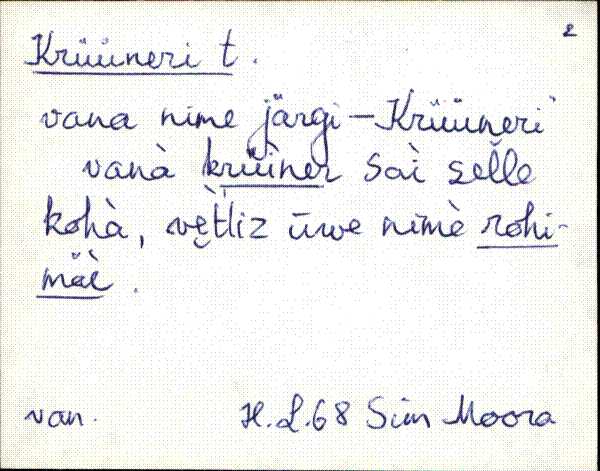 2
Krüüneri t.
vana nime järgi – Krüüneri
vanà krüìner saì selle
kohà, vètliz ūwe nimè rohi-
mäè.
van. H.L.68 Siim Moora